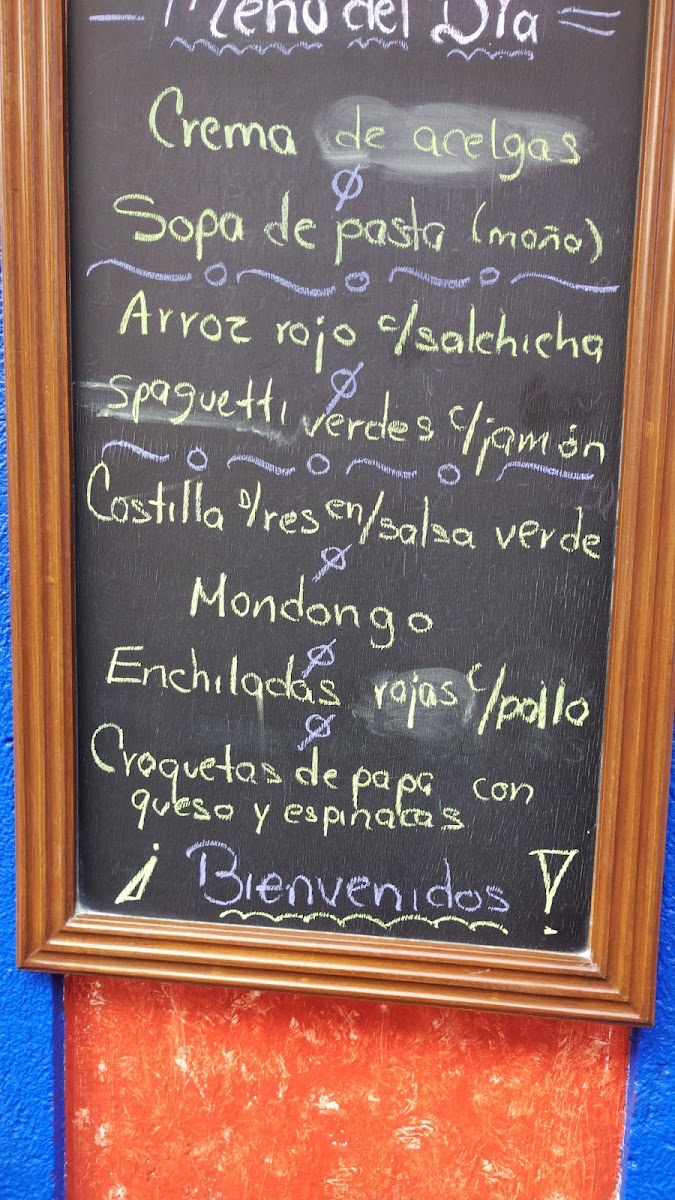 Menú del Día
Crema de acelgas
Sopa de pasta (moño)
Arroz rojo c/salchicha
Spaguetti verdes c/jamón
Costilla D/res en/salsa verde
Mondongo
Enchiladas rojas c/pollo
Croquetas de papa con
queso y espinacas
¡Bienvenidos!